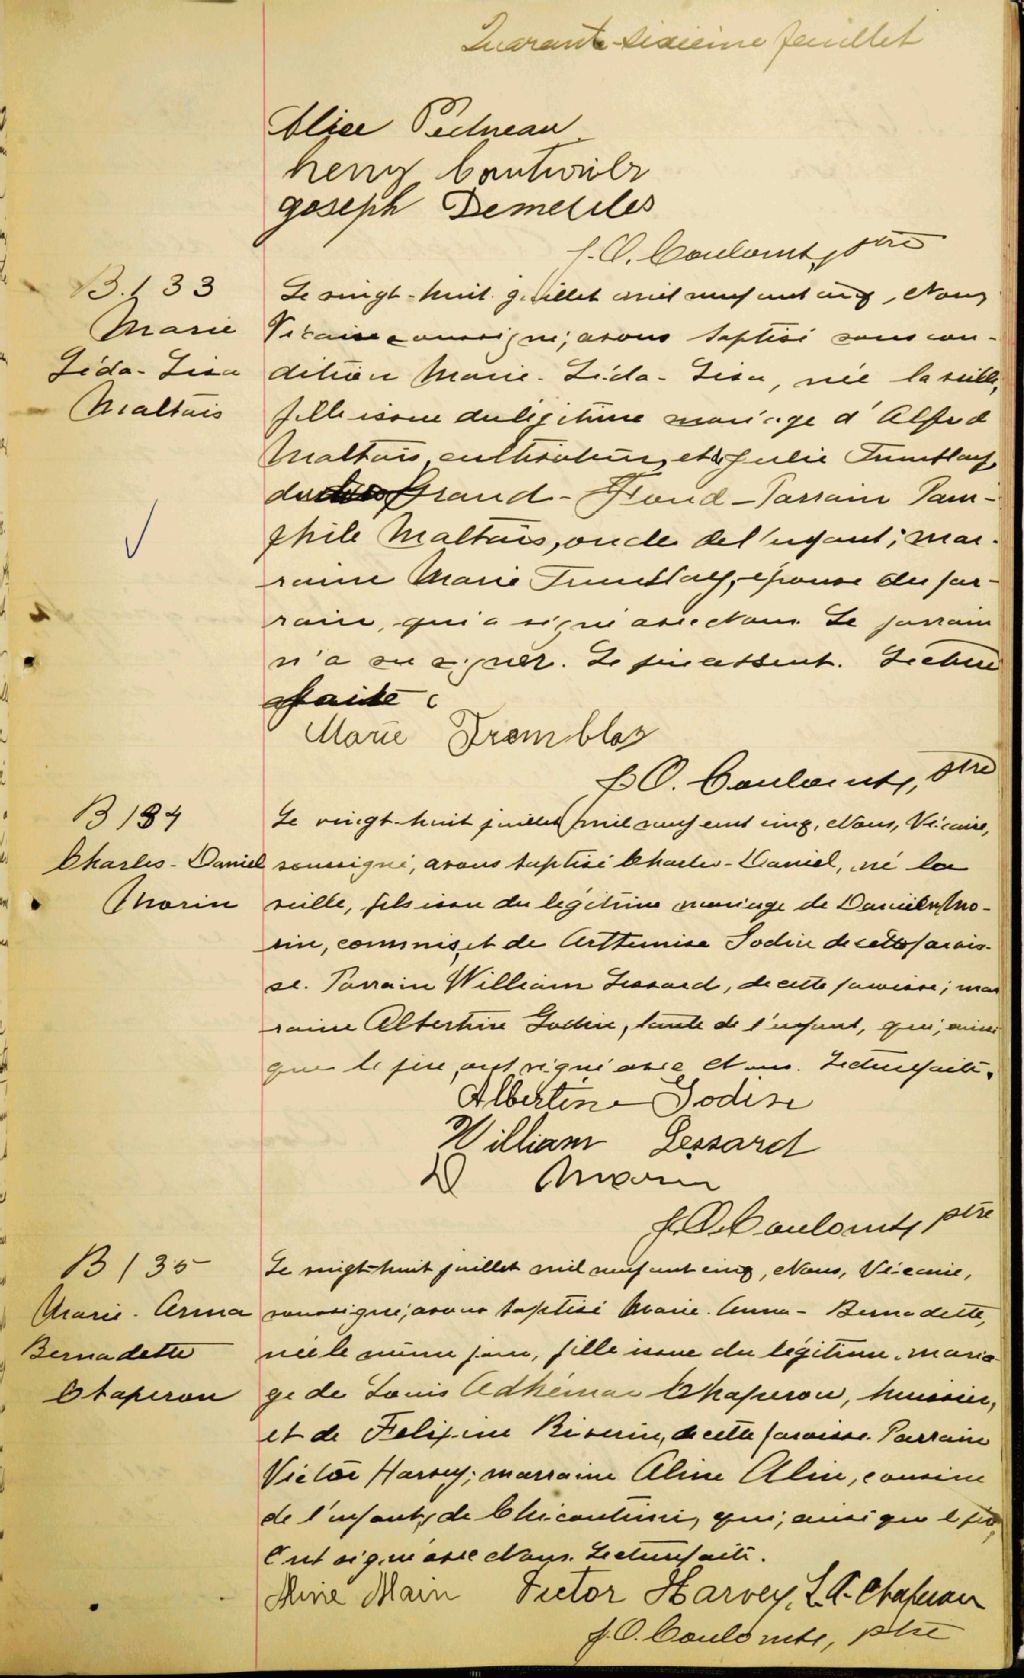 Quarante-sixième feuillet
Alice Pedneau
henry Couturier
Joseph Demeules
J.O. Coulombe, ptre
B. 133
Marie
Léda-Lisa
Maltais
Le vingt-huit juillet mil neuf cent cinq, Nous
Vicaire soussigné, avons baptisé sous con-
dition Marie-Léda-Lisa, née la veille,
fille issue du légitime mariage d'Alfred
Maltais, cultivateur, et de Julie Tremblay,
du Grand-Fond - Parrain Pam-
phile Maltais, oncle de l'enfant; mar-
raine Marie Tremblay, épouse du par-
rain, qui a signé avec Nous. Le parrain
n'a su signer. Le père absent. Lecture
faite.
Marie Tremblay
J.O. Coulombe, ptre
B 134
Charles-Daniel
Morin
Le vingt-huit juillet mil neuf cent cinq, Nous, Vicaire,
soussigné, avons baptisé Charles-Daniel, né la
veille, fils issu du légitime mariage de Daniel Mo-
rin, commis, et de Arthemise Godin de cette parois-
se. Parrain William Lessard, de cette paroisse; mar
raine Albertine Godin, tante de l'enfant, qui, ainsi
que le père, ont signé avec Nous. Lecture faite.
Albertine Godin
William Lessard
D Morin
J.O. Coulombe, ptre
B 135
Marie-Anna
Bernadette
Chaperon
Le vingt-huit juillet mil neuf cent cinq, Nous, Vicaire,
soussigné, avons baptisé Marie-Anna-Bernadette,
née le même jour, fille issue du légitime maria-
ge de Louis Adhémar Chaperon, huissier,
et de Felixine Riverin, de cette paroisse. Parrain
Victor Harvey; marraine Aline Alin, cousine
de l'enfant, de Chicoutimi, qui, ainsi que le père,
ont signé avec Nous. Lecture faite.
Aline Alain Victor Harvey, L.A. Chaperon
J.O. Coulombe, ptre